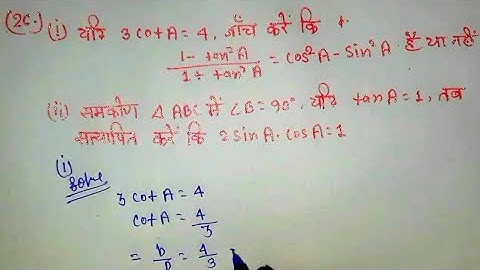 (26.) (i) यदि 3 cot A = 4, जाँच करें कि
1 - tan²A / 1 + tan²A = cos²A - sin²A है या नहीं
(ii) समकोण Δ ABC में ∠B = 90°, यदि tan A = 1, तब
सत्यापित करें कि 2 sin A . cos A = 1
(i)
Solve
3 cot A = 4
cot A = 4/3
= b/p = 4/3